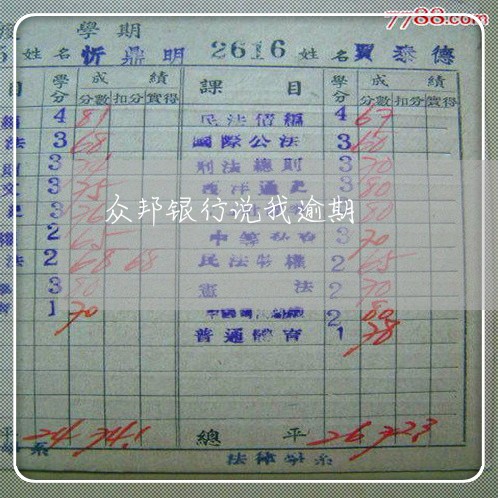 7788.com
學期
姓名 忻鼎明 2616 姓名 賈泰德
目 學分 成績 課目 學分 成績
分數 扣分 實得 分數 扣分 實得
4 81 民法債編 4 67
法 3 68 國際公法 3 60
3 刑法總則 3 70
3 75 西洋通史 3 80
3 3 80
2 65 3 70
法 2 68 68 民法物權 2 65
3 80 憲法 2 70
1 70 2 80
普通體育 1 78
众邦银行说我逾期
平 24 74.1 總平 26 72.3
系 法律學系